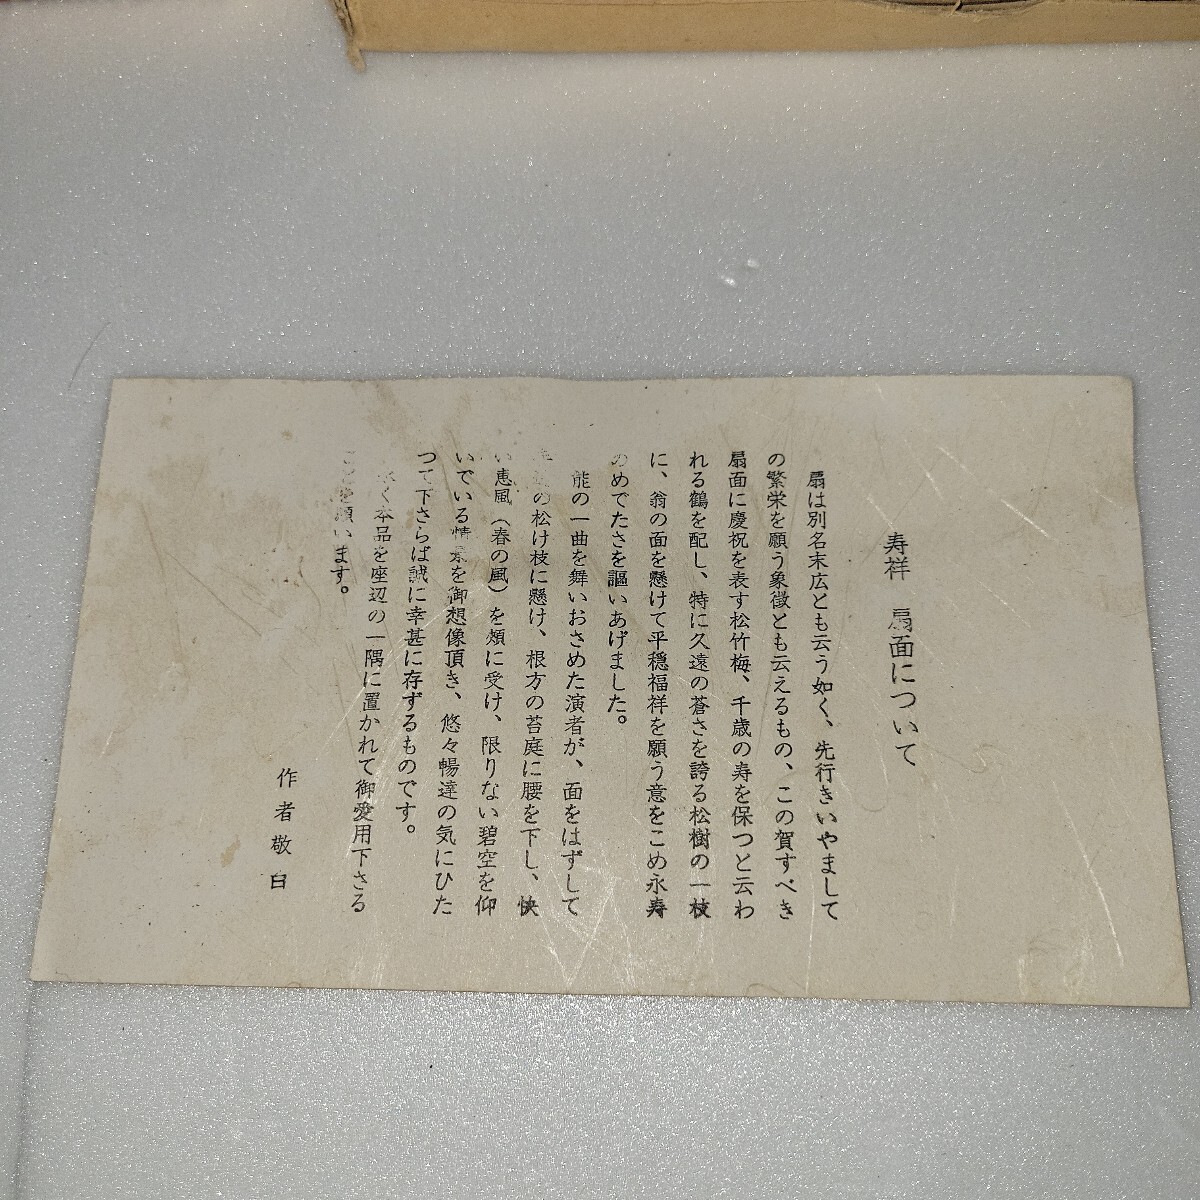 寿祥 扇面について
扇は別名末広とも云う如く、先行きいやまして
の繁栄を願う象徴とも云えるもの、この賀すべき
扇面に慶祝を表す松竹梅、千歳の寿を保つと云わ
れる鶴を配し、特に久遠の蒼さを誇る松樹の一枝
に、翁の面を懸けて平穏福祥を願う意をこめ永寿
のめでたさを謳いあげました。
能の一曲を舞いおさめた演者が、面をはずして
の松け枝に懸け、根方の苔庭に腰を下し、快
い恵風（春の風）を頬に受け、限りない碧空を仰
いでいる情景を御想像頂き、悠々暢達の気にひた
つて下さらば誠に幸甚に存ずるものです。
く本品を座辺の一隅に置かれて御愛用下さる
ことを願います。
作者敬白